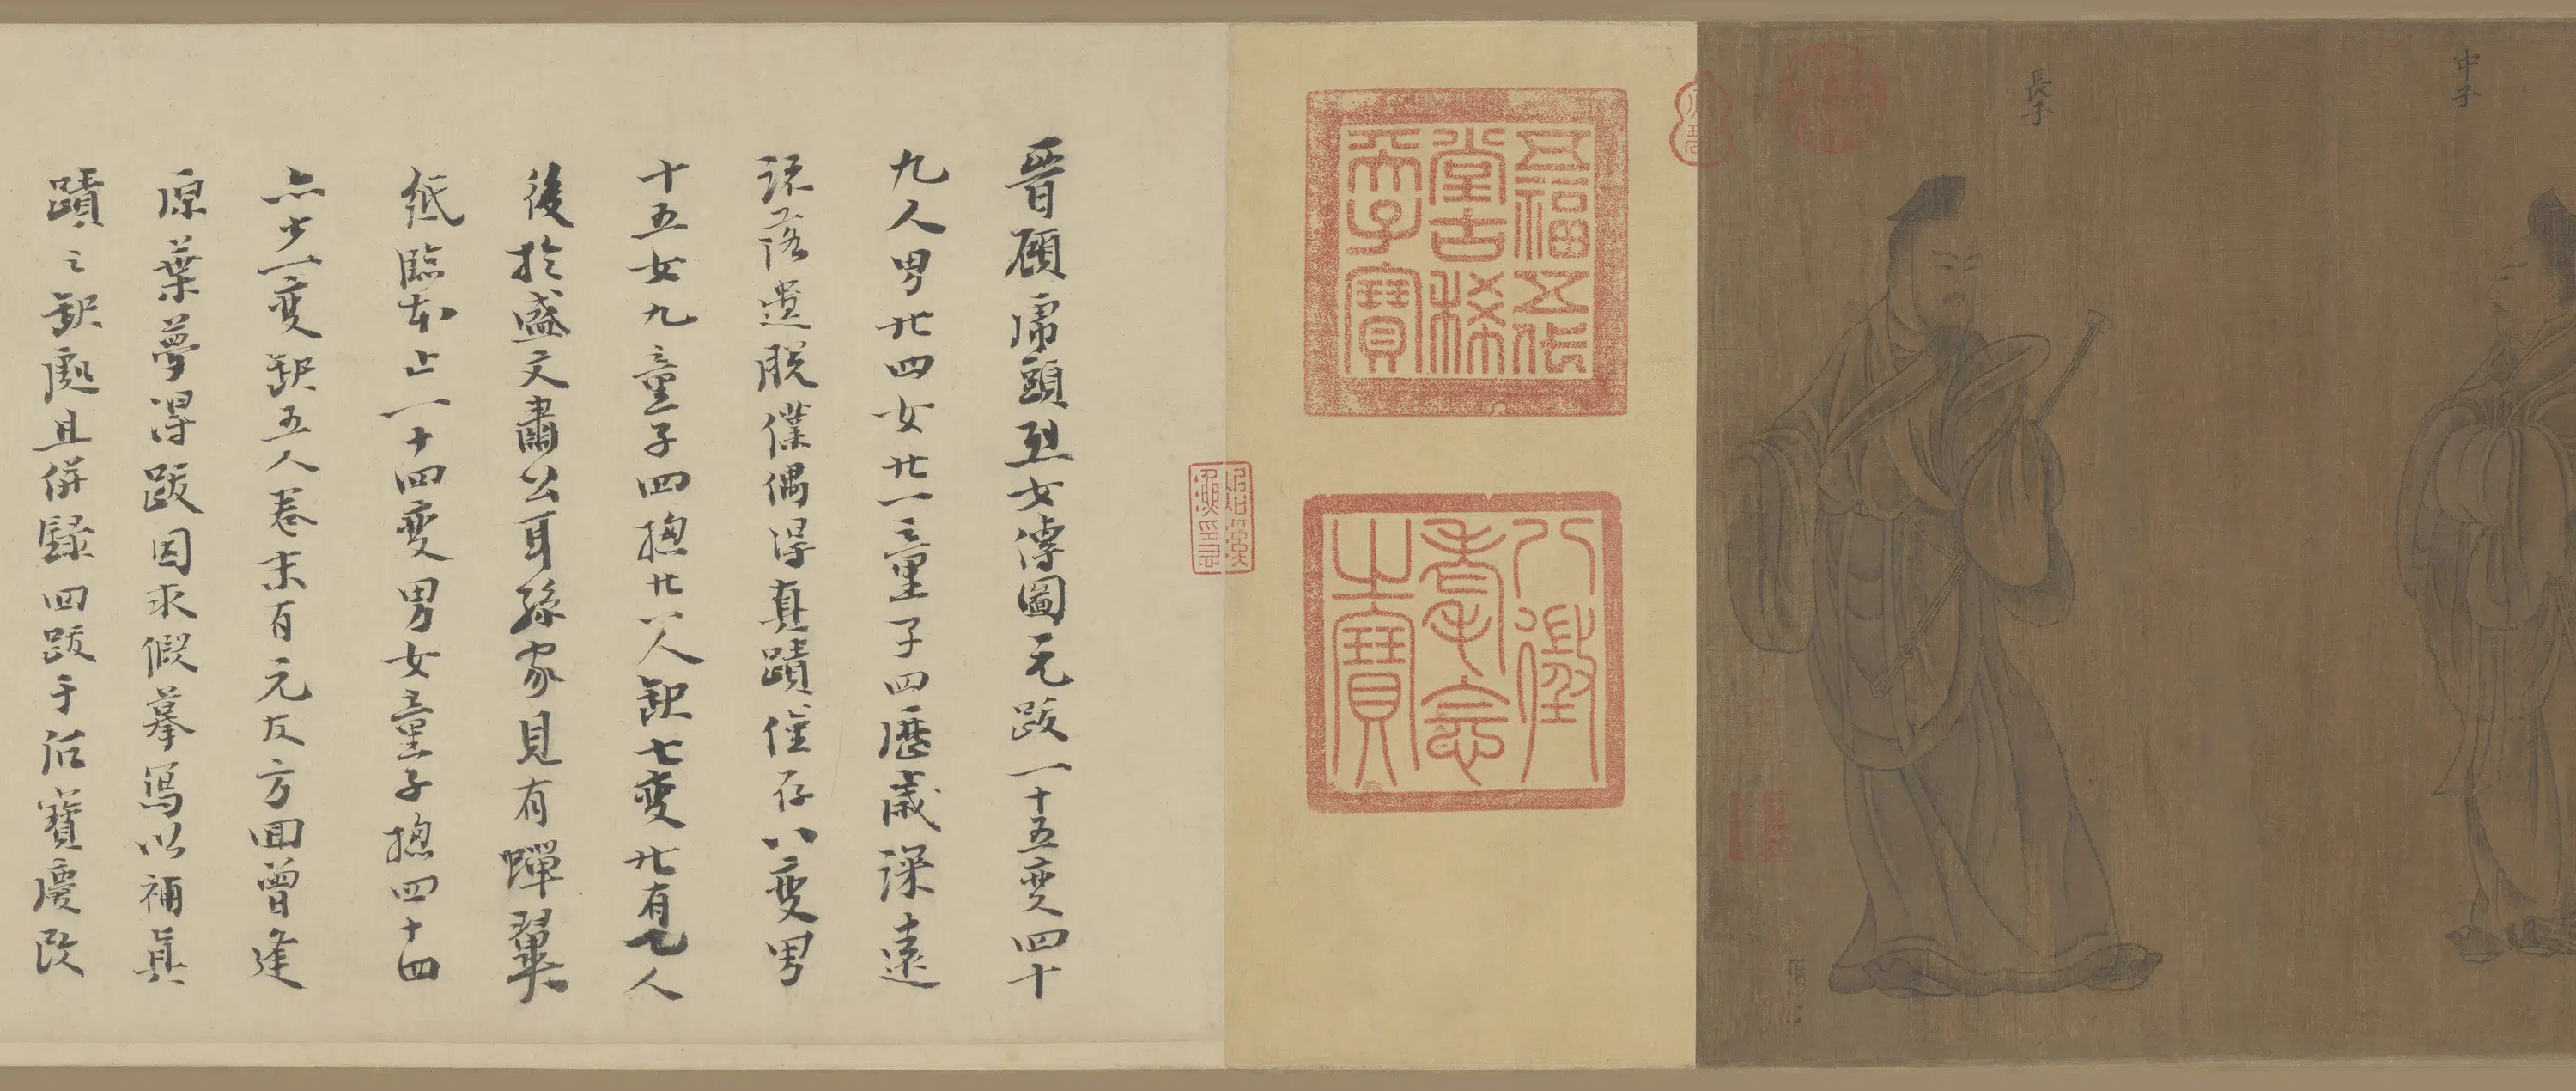 中子
長子
五福五代
堂古稀
天子寶
八徵
耄念
之寶
晉顧虎頭烈女傳圖元跋一十五變四十
九人男廿四女廿一童子四歷歲深遠
落遺脫僕偶得真蹟僅存八變男
十五女九童子四摠廿八人缺七變廿有人
後於盛文肅公耳孫家見有蟬翼
紙臨本止一十四變男女童子摠四十四
亦少一變缺五人卷末有元友方回曾逢
原葉夢得跋因求假摹寫以補真
蹟之缺處且併錄四跋于后寶慶改